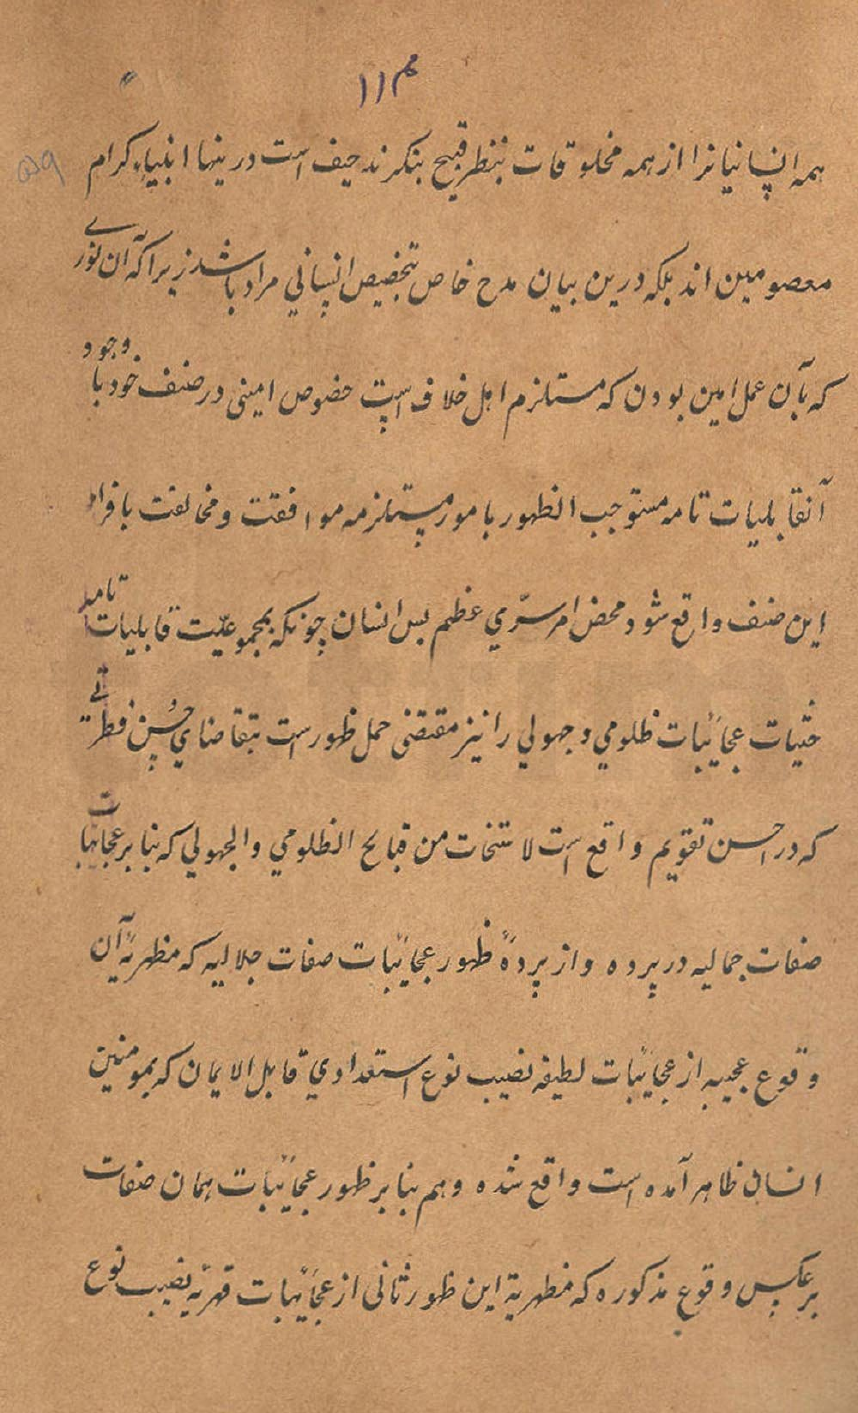 ۱۱۴
۵۹
همه انسانیانرا از همه مخلوقات بنظر قبیح بنگرند حیف است درینها انبیاء کرام
معصومین اند بلکه درین بیان مدح خاص بتخصیص انسانی مراد باشد زیرا که آن نوری
که بآن عمل امین بودن که مستلزم اهل خلاف است خصوص امینی در صنف خود با وجود
آنقابلیات تامه مستوجب الظهور بامور مستلزمه موافقت و مخالفت بافراد
این صنف واقع شود محض امر سرّی عظم پس انسان چونکه بمجموعیّت قابلیات تامه
عجائبات ظلومی و جهولی را نیز مقتضی حمل ظهور است بتقاضای حُسن فطرتی
که در احسن تقویم واقع است من قبایح الظلومی والجهولی که بنا بر عجائبات
صفات جمالیه در پرده و از پردهٔ ظهور عجائبات صفات جلالیه که مظهریهٔ آن
وقوع عجیبه از عجائبات لطیفه نصیب نوع استعدادی قابل الایمان که بمومنین
انسانی ظاهر آمده است واقع شده وهم بنا بر ظهور عجائبات همان صفات
برعکس وقوع مذکوره که مظهریة این ظهور ثانی از عجائبات قهریّه نصیب نوع